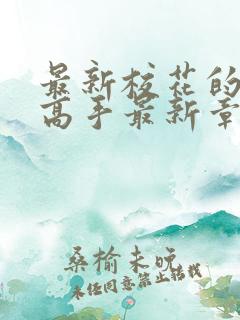 最新校花的
高手最新章
桑榆未晚
未经同意禁止转载